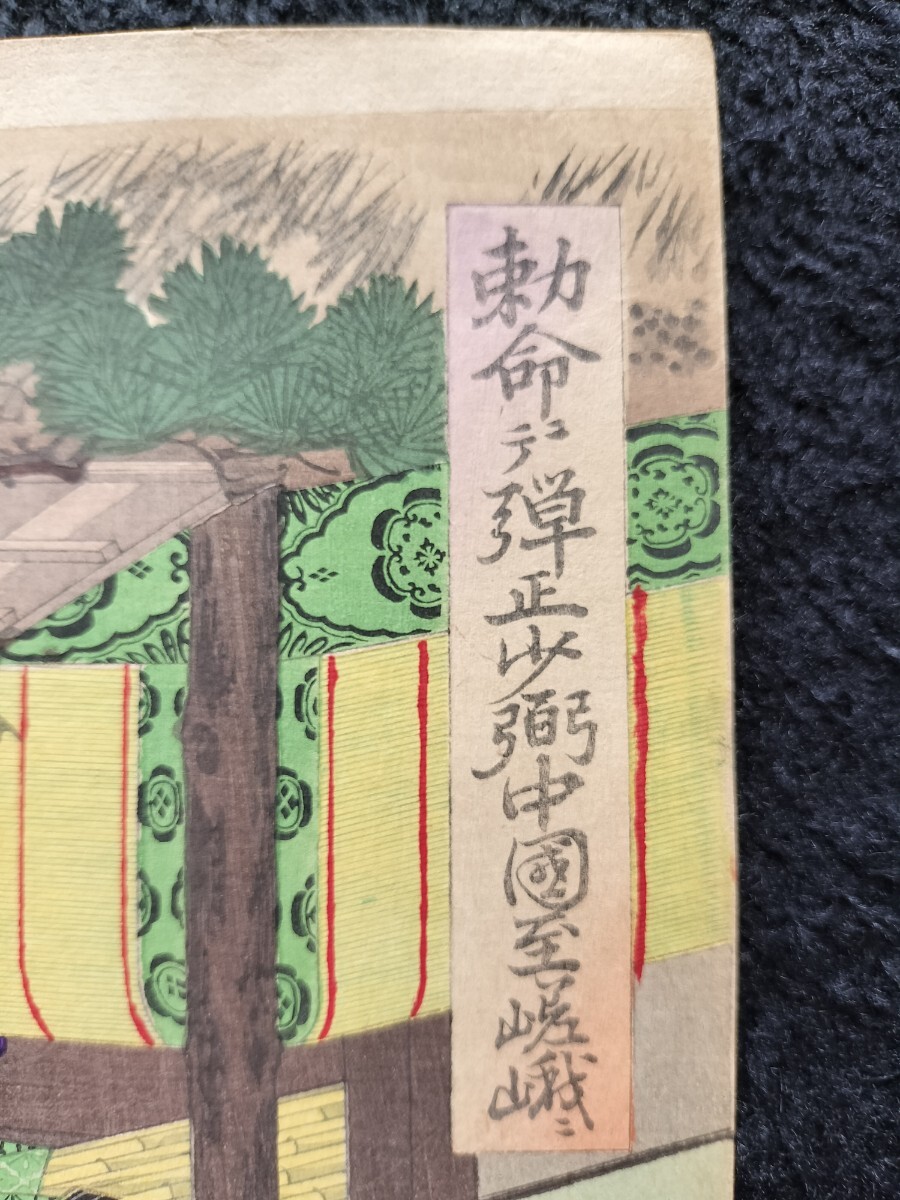 勅命ニテ弾正少弼中國至嵯峨ニ